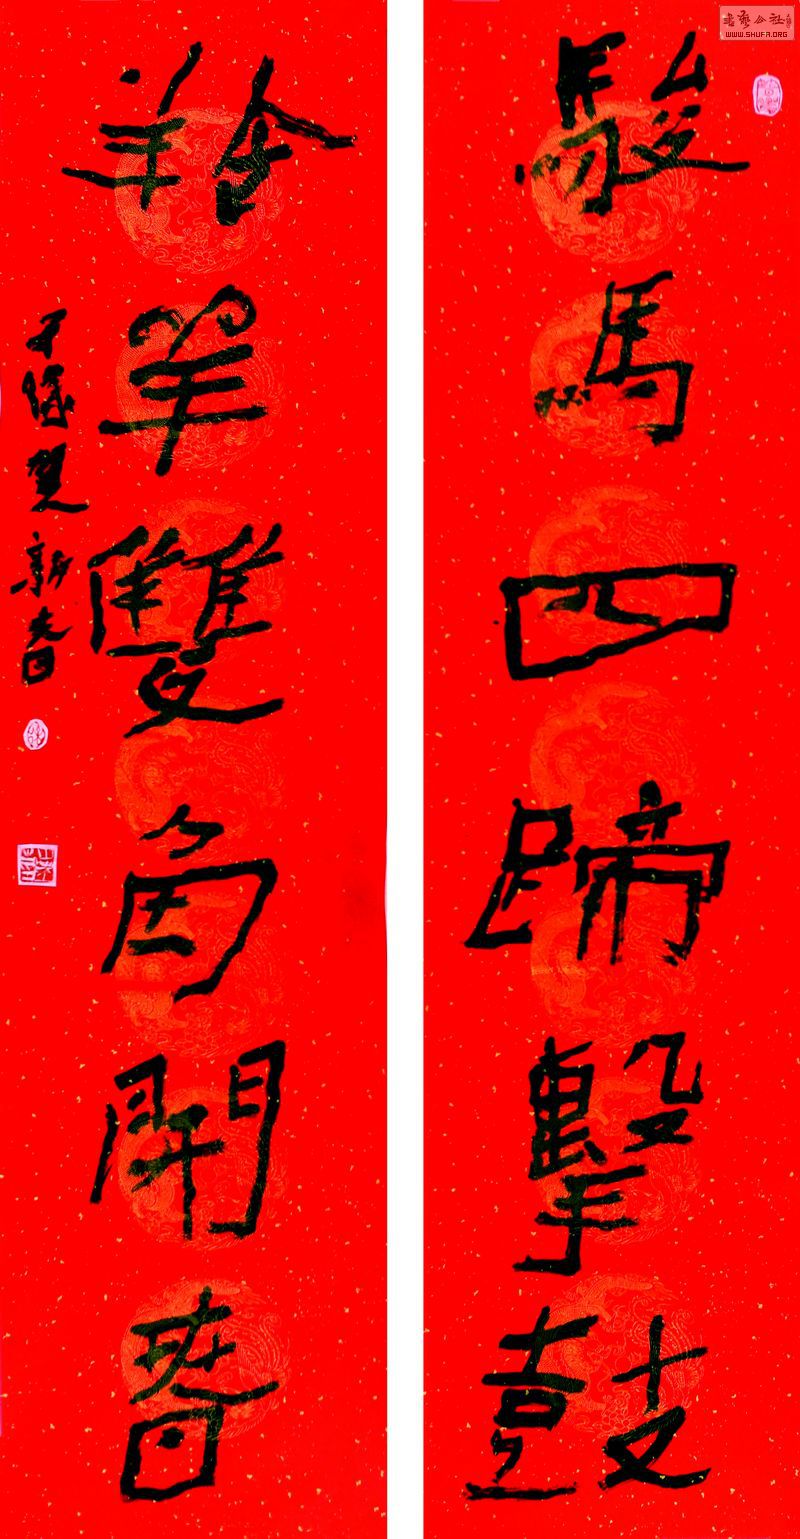 書藝公社
WWW.SHUFA.ORG
駿馬四蹄擊鼓
羚羊雙角開春
賀新春